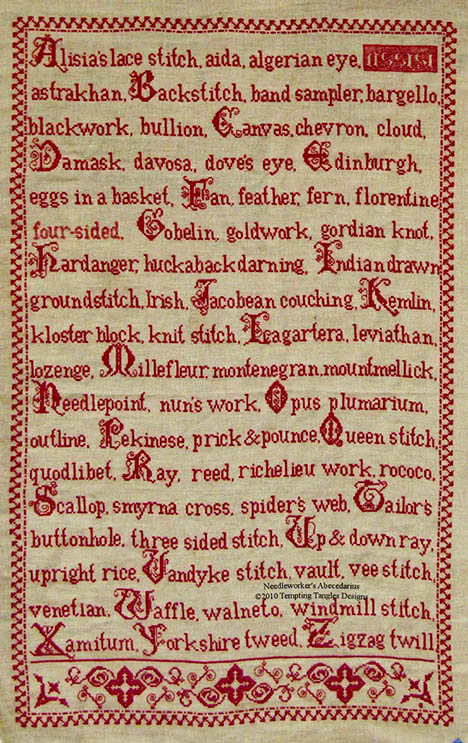 Alisia's lace stitch, aida, algerian eye,
astrakhan, Backstitch, band sampler, bargello,
blackwork, bullion, Canvas, chevron, cloud,
Damask, davosa, dove's eye, Edinburgh,
eggs in a basket, Fan, feather, fern, florentine
four-sided, Gobelin, goldwork, gordian knot,
Hardanger, huckaback darning, Indian drawn
groundstitch, Irish, Jacobean couching, Kemlin,
kloster block, knit stitch, Leagartera, leviathan,
lozenge, Millefleur, montenegran, mountmellick,
Needlepoint, nun's work, Opus plumarium,
outline, Pekinese, prick & pounce, Queen stitch,
quodlibet, Ray, reed, richelieu work, rococo,
Scallop, smyrna cross, spider's web, Tailor's
buttonhole, three sided stitch, Up & down ray,
upright rice, Vandyke stitch, vault, vee stitch,
Needleworker's Abecedarius
©2010 Tempting Tangles Designs
venetian, Waffle, walneto, windmill stitch,
Xamitum, Yorkshire tweed, Zigzag twill